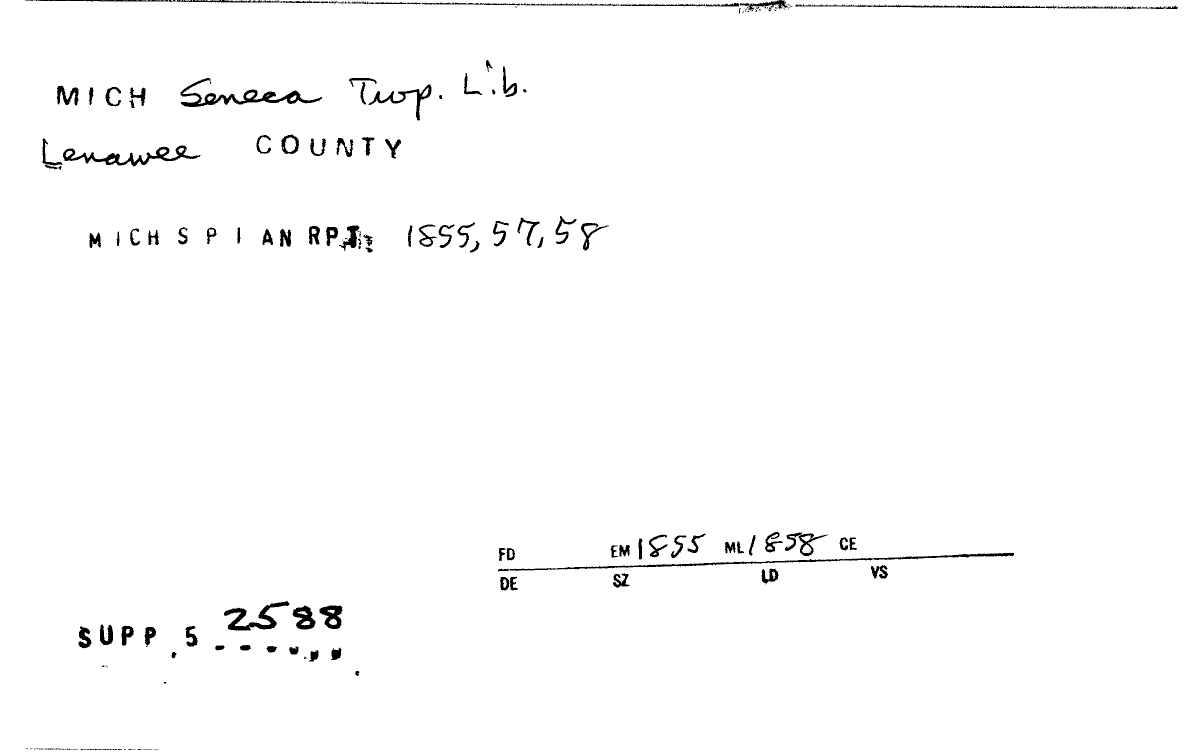 MICH Seneca Twp. Lib.
Lenawee COUNTY
MICH S P I AN RPT. 1855, 57, 58
FD EM 1855 ML 1858 CE
DE SZ LD VS
SUPP. 5 2588